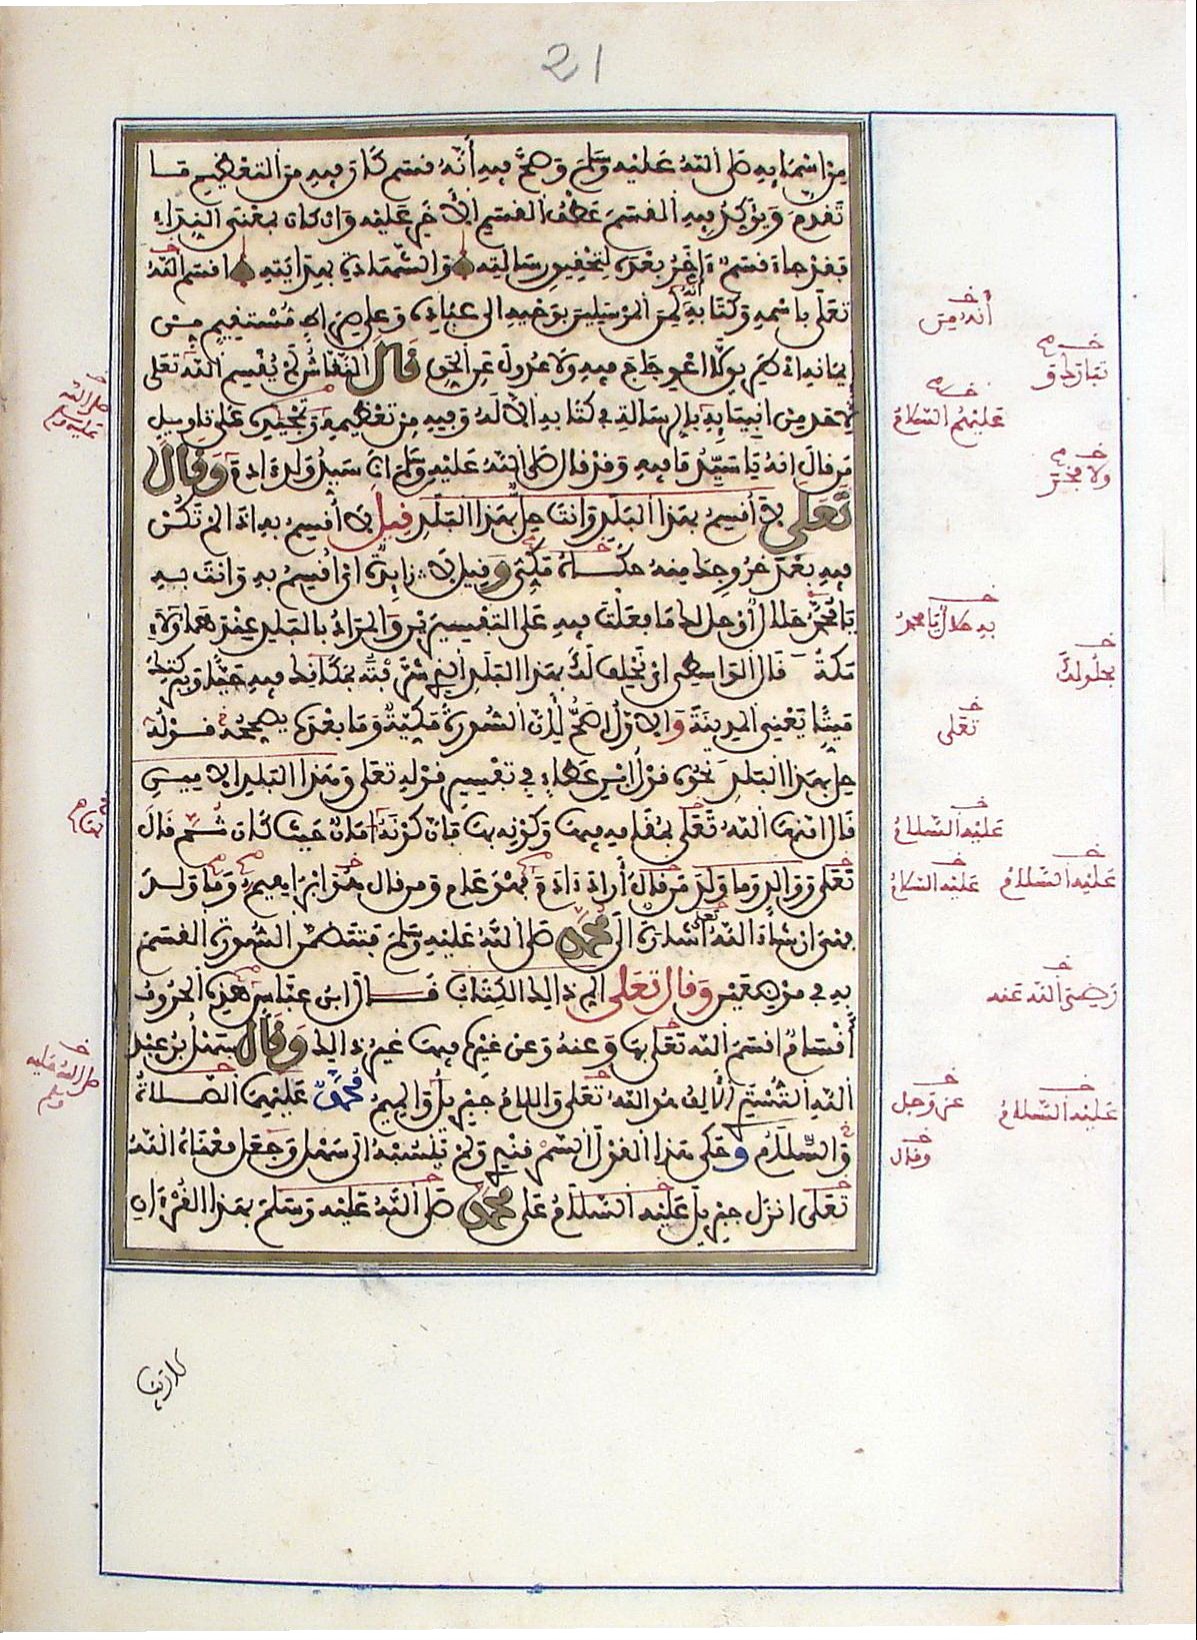 21
من اسمايه صلى الله عليه وسلم وصح فيه أنه فسم كان فيه من التعظيم ما
تفدم ويؤكد فيه الفسم عطف الفسم الاخر عليه وان كان بمعنى النداء
بفد جاء فسم ءاخر بعده لتحفيق رسالته والشهادة بهدايته افسم الله
تعلى باسمه وكتابه انه لمن المرسلين بوحيه الى عباده وعلى صراط مستفيم من
ايمانه اى طريق لا اعوجاج فيه ولا عدول عن الحق فال النفاش لم يفسم الله تعلى
لاحد من انبيايه بالرسالة في كتابه الا له وفيه من تعظيمه وتمجيده على تاويل
من فال انه يا سيد ما فيه وفد فال صلى الله عليه وسلم انا سيد ولد ءادم وفال
تعلى لا أفسم بهذا البلد وانت حل بهذا البلد فيل لا أفسم به اذا لم تكن
فيه بعد خروجك منه حكاه مكي وفيل لا زايدة اى افسم به وانت به
يا محمد حلال أو حل لك ما فعلت فيه على التفسيرين والمراد بالبلد عند هاولاء
مكة فال الواسطي اى نحلف لك بهذا البلد الذي شرفته بمكانك فيه حيا وببركتك
ميتا يعني المدينة والاول اصح لأن السورة مكية وما بعده يصححه فوله
حل بهذا البلد نحوه فول ابن عطاء في تفسير فوله تعلى وهذا البلد الامين
فال امنها الله تعلى بمفامه فيها وكونه بها فان كونه امان حيث كان ثم فال
تعلى ووالد وما ولد من فال أراد ءادم فهو عام ومن فال هو ابراهيم وما ولد
فهي ان شاء الله تعلى اشارة الى محمد صلى الله عليه وسلم فتتضمن السورة الفسم
به في موضعين وفال تعلى الم ذالك الكتاب فال ابن عباس هذه الحروف
أفسام افسم الله تعلى بها وعنه وعن غيره فيها غير ذالك وفال سهل بن عبد
الله التستري الألف هو الله تعلى واللام جبريل والميم محمد عليهما الصلاة
والسلام وحكى هذا الفول السمرفندي ولم ينسبه الى سهل وجعل معناه الله
تعلى انزل جبريل عليه السلام على محمد صلى الله عليه وسلم بهذا الفرءان
أنه من
عليهم السلام
ولا فخر
به حلال يا محمد
بحلولك
تعلى
عليه السلام
عليه السلام
عليه السلام
رضي الله عنه
عز وجل
عليه السلام
وفال
صلى الله
عليه وسلم
بها
صلى الله عليه
وسلم
لا ريب